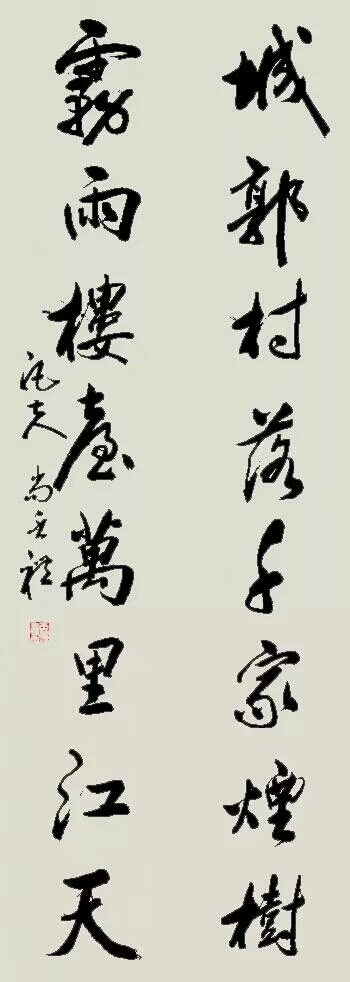 城郭村落千家煙樹
霧雨樓臺萬里江天